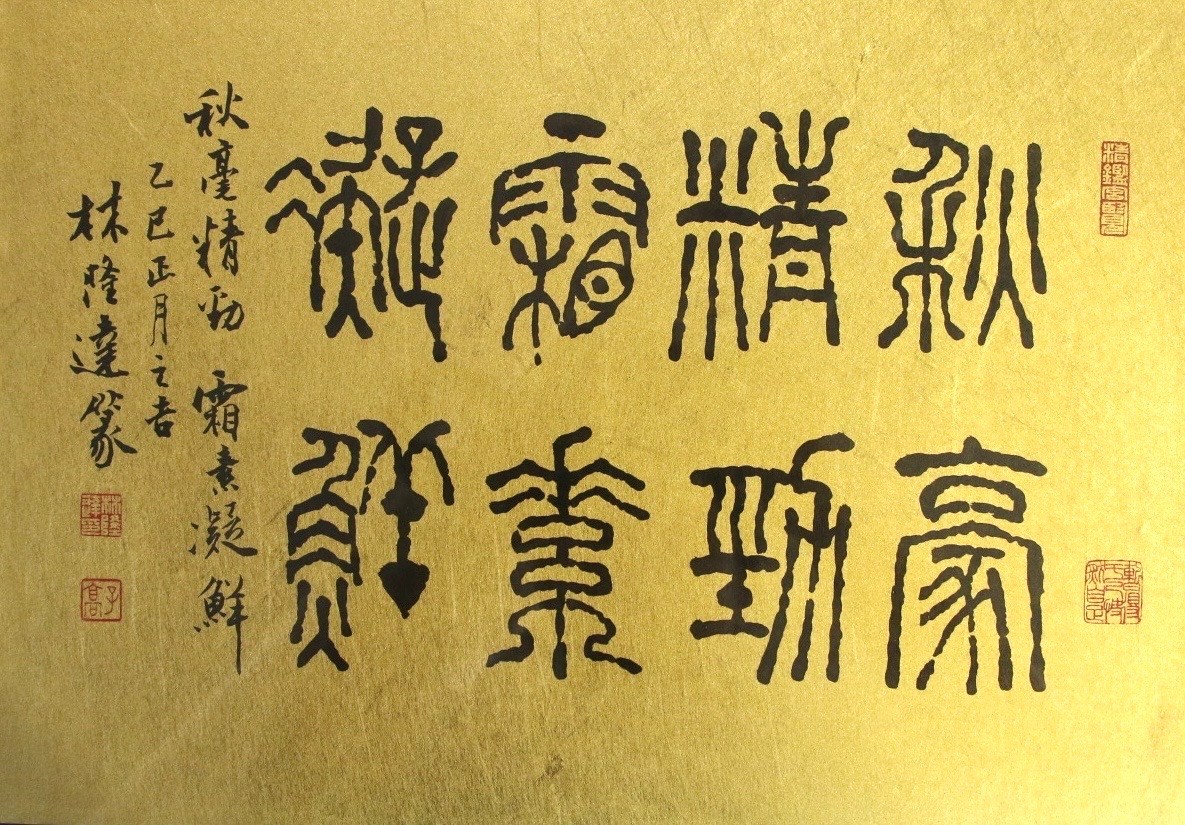 秋豪
精勁
霜素
凝鮮
秋毫精勁 霜素凝鮮
乙巳正月之吉
林隆達篆
子高